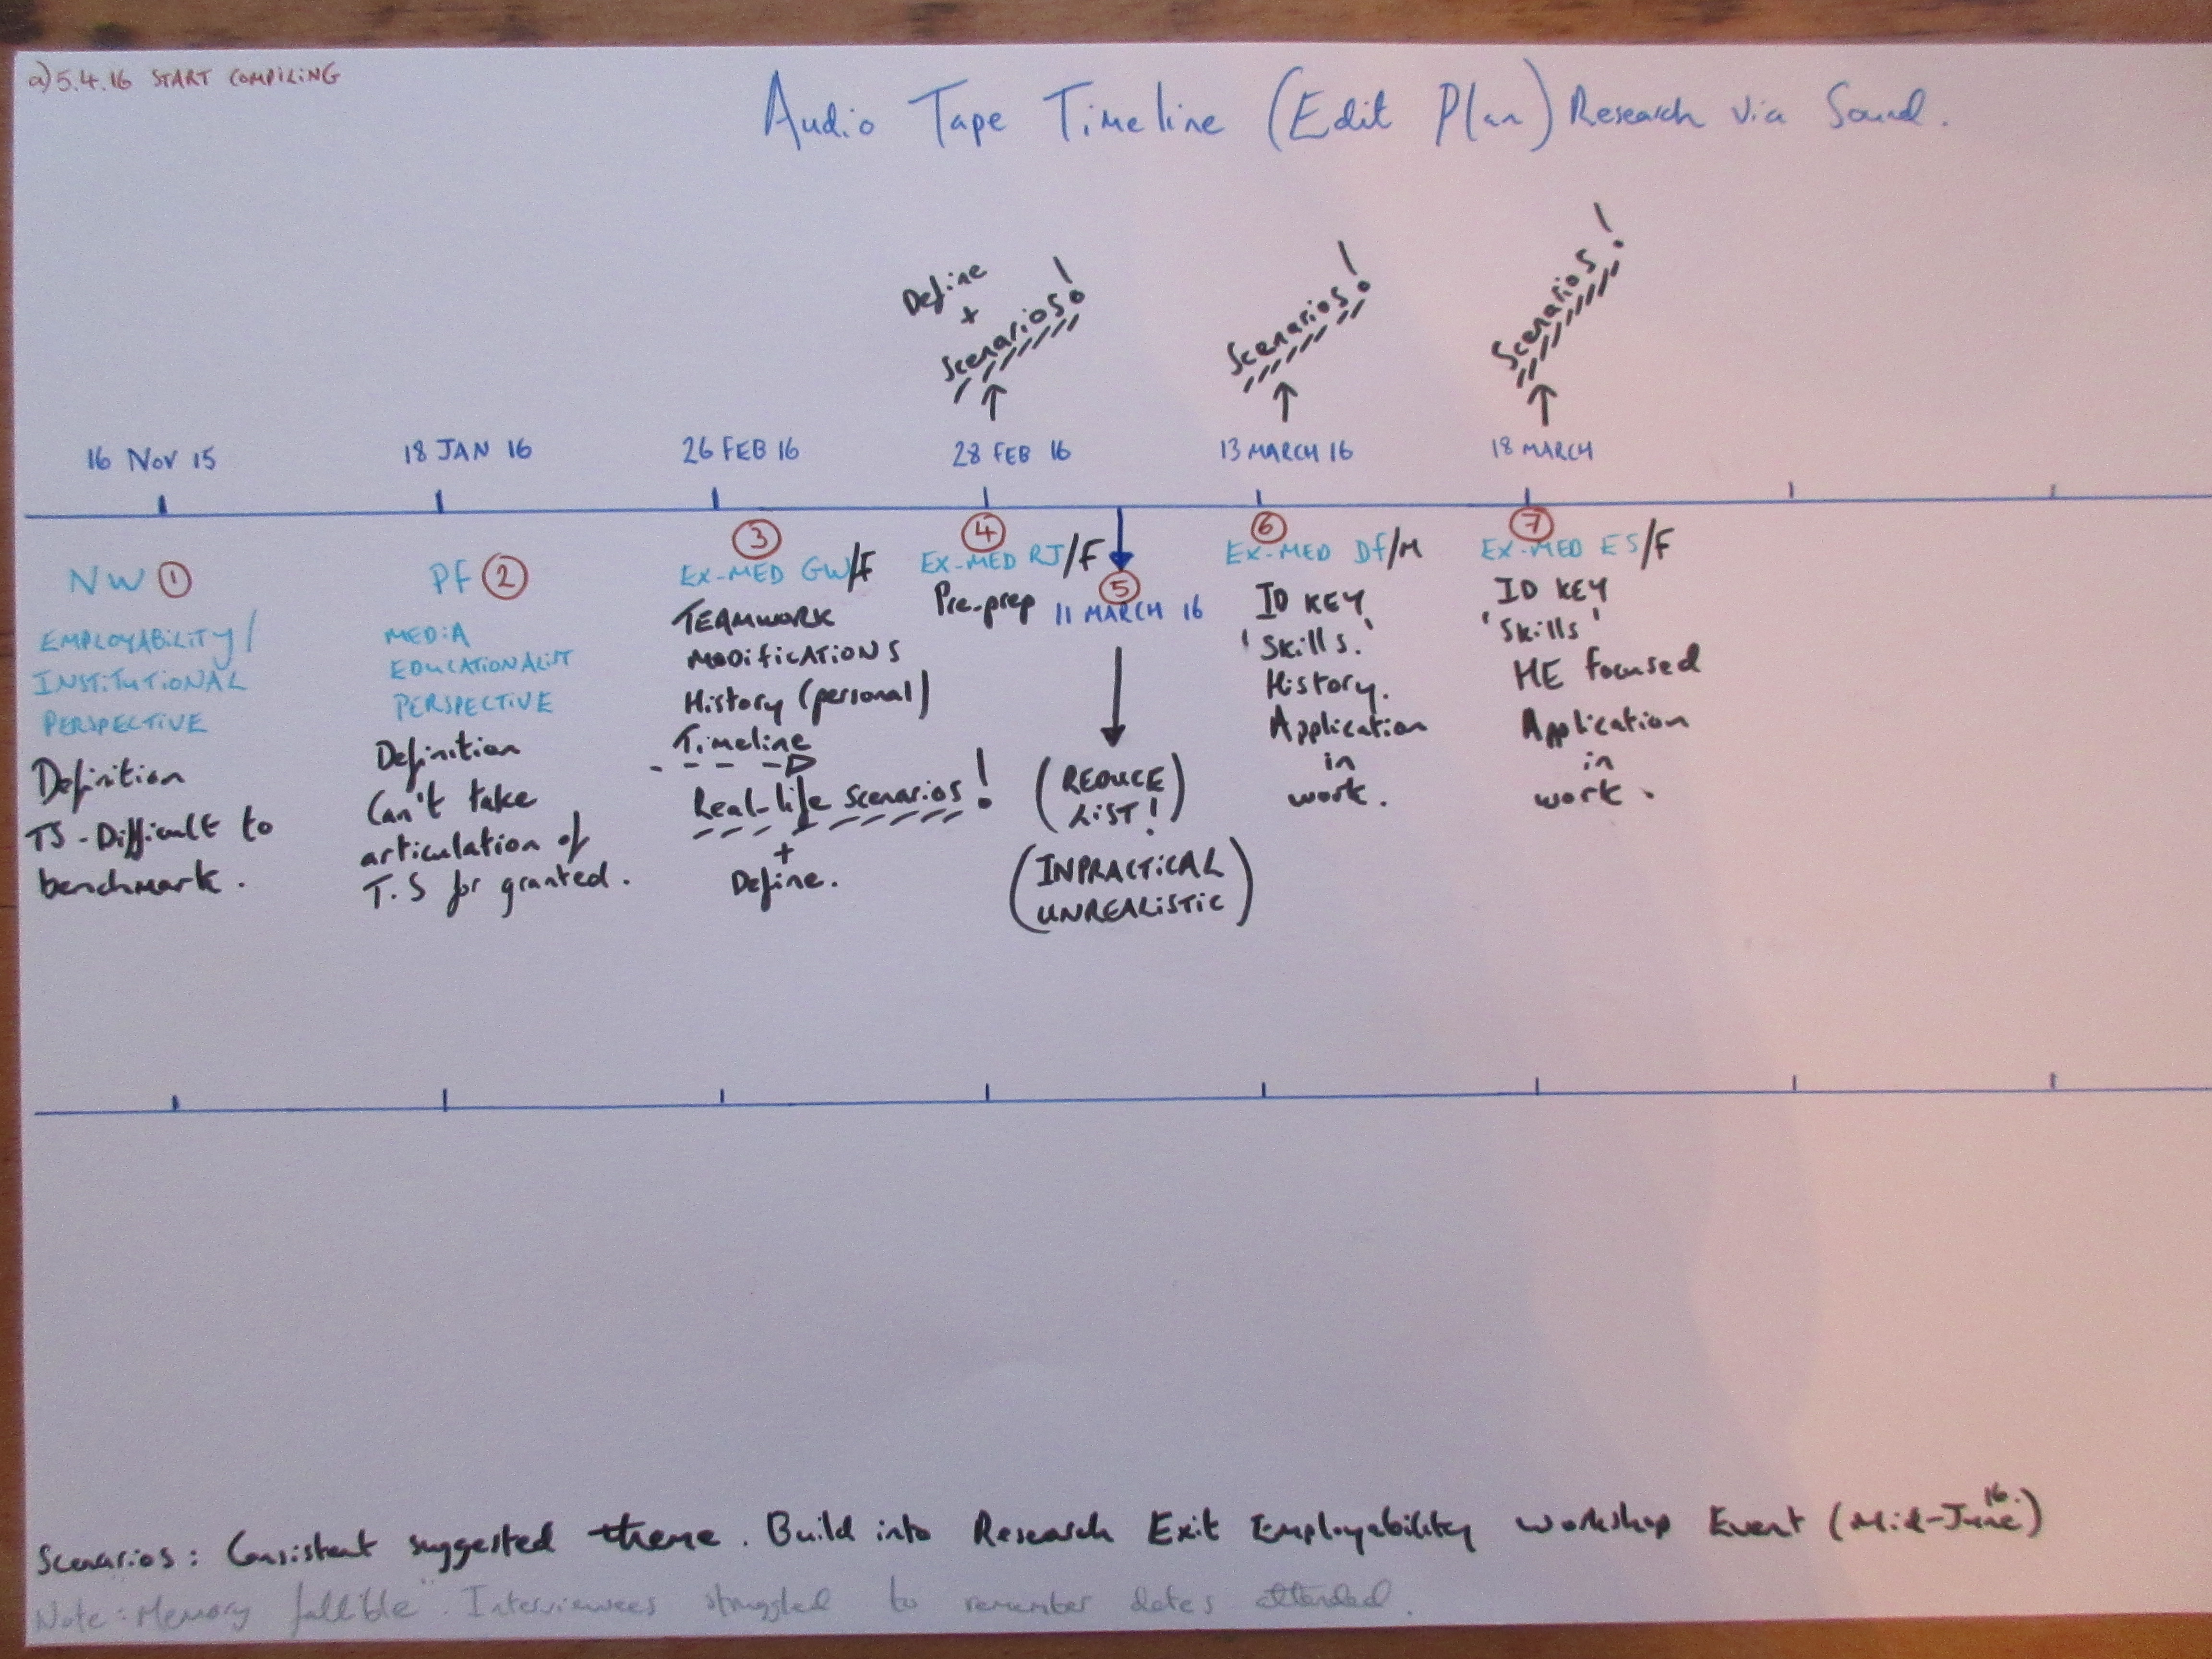 a) 5.4.16 START COMPILING
Audio Tape Timeline (Edit Plan) Research via Sound.
Define
+
Scenarios!
Scenarios!
Scenarios!
16 NOV 15
18 JAN 16
26 FEB 16
28 FEB 16
13 MARCH 16
18 MARCH
NW 1
EMPLOYABILITY/
INSTITUTIONAL
PERSPECTIVE
Definition
TS - Difficult to
benchmark.
PF 2
MEDIA
EDUCATIONALIST
PERSPECTIVE
Definition
Can't take
articulation of
T.S for granted.
3
EX-MED GW/F
TEAMWORK
MODIFICATIONS
History (personal)
Timeline
Real-life scenarios!
+
Define.
4
EX-MED RJ/F
Pre-prep
5
11 MARCH 16
(REDUCE
LIST!)
(INPRACTICAL
UNREALISTIC)
6
EX-MED DF/M
ID KEY
'Skills.'
History.
Application
in
work.
7
EX-MED ES/F
ID KEY
'Skills'
HE focused
Application
in
work.
Scenarios: Consistent suggested theme. Build into Research Exit Employability Workshop Event (Mid-June 16.)
Note: Memory fallible". Interviewees struggled to remember dates attended.